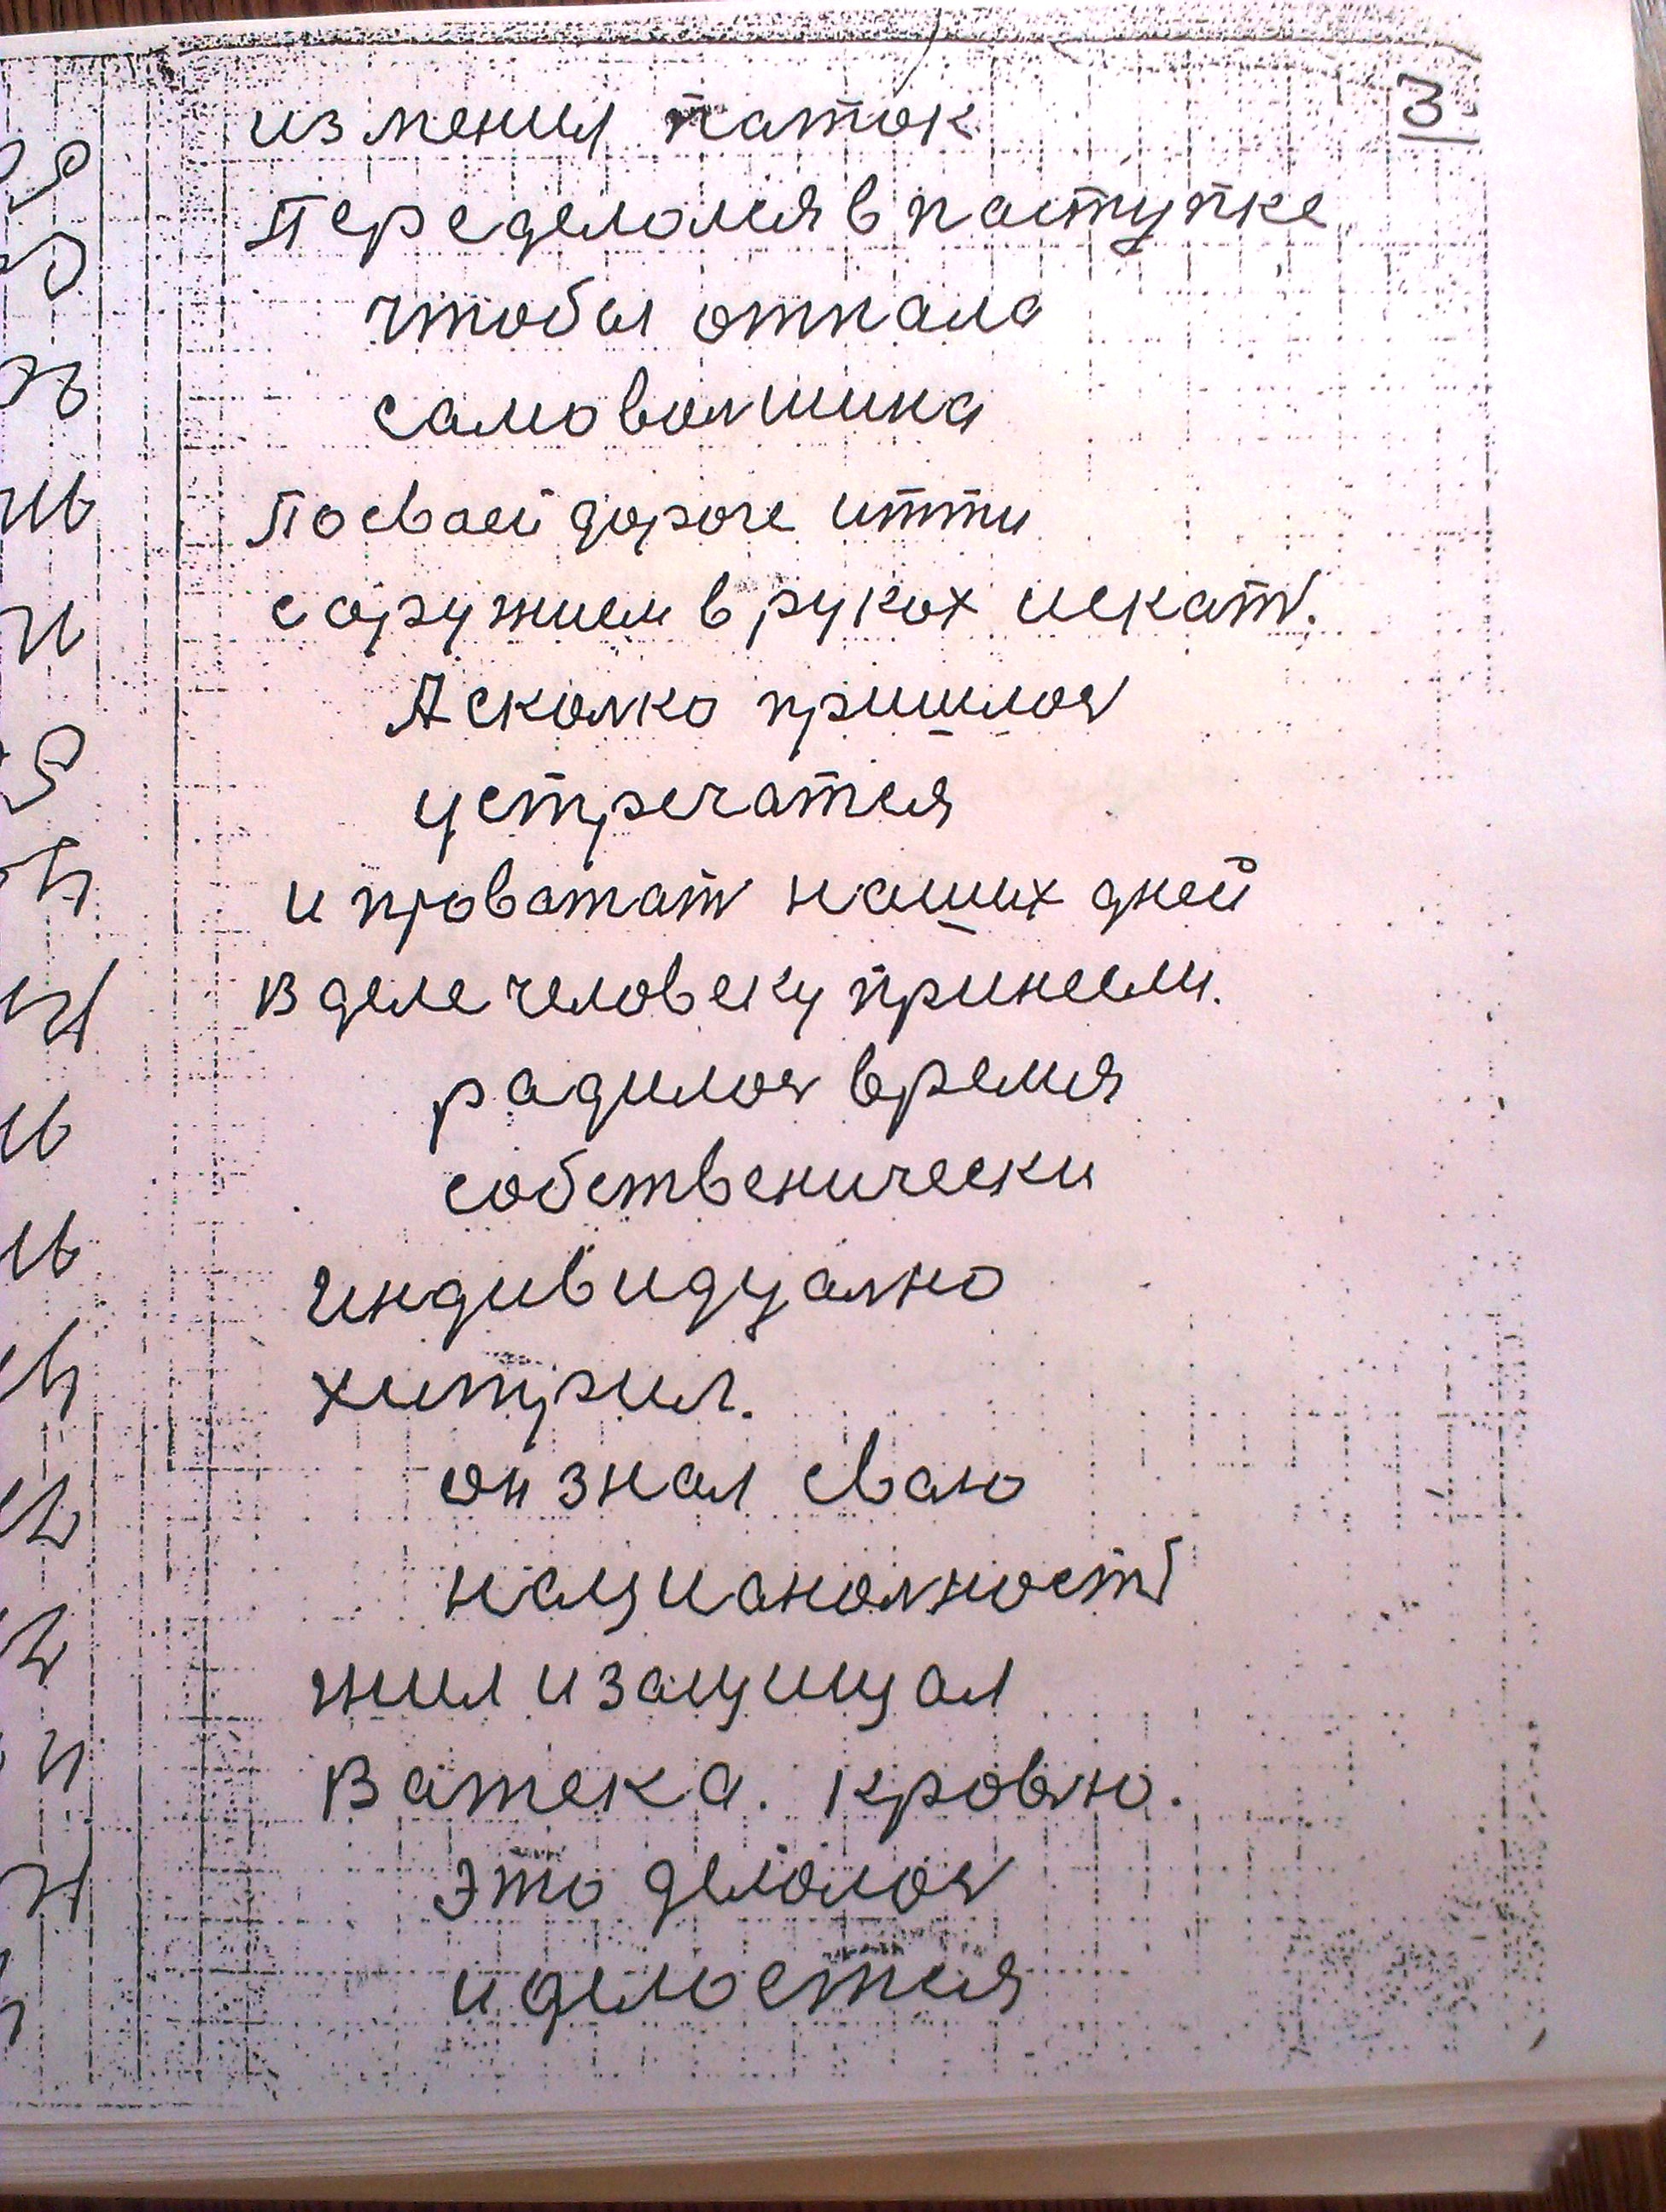 3.
изменил паток
Переделолся в паступке
чтобы отпала
самоволшина
По сваей дороге итти
с оружием в руках искат.
А сколко пришлос
устречатся
и проватат наших дней
в деле человеку принесли.
радилос время
собственически
индивидуално
хитрил.
он знал сваю
нацыаналност
жил и защищал
Ватека. кровю.
Это делолос
и делоется